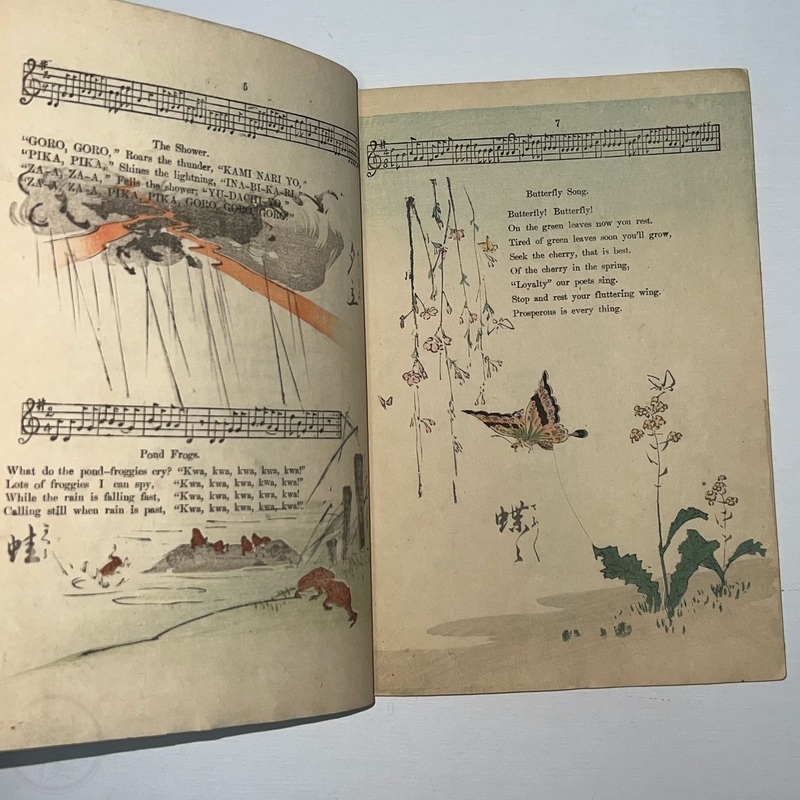 5
The Shower.
"GORO, GORO," Roars the thunder, "KAMI NARI YO,"
"PIKA, PIKA," Shines the lightning, "INA-BI-KA-RI,"
"ZA-A, ZA-A," Falls the shower; "YU-DACHI-YO,"
"ZA-A, ZA-A, PIKA, PIKA, GORO, GORO, GORO!"
夕立
Pond Frogs.
What do the pond-froggies cry? "Kwa, kwa, kwa, kwa, kwa!"
Lots of froggies I can spy, "Kwa, kwa, kwa, kwa, kwa!"
While the rain is falling fast, "Kwa, kwa, kwa, kwa, kwa!
Calling still when rain is past, "Kwa, kwa, kwa, kwa, kwa!".
蛙
7
Butterfly Song.
Butterfly! Butterfly!
On the green leaves now you rest.
Tired of green leaves soon you'll grow,
Seek the cherry, that is best.
Of the cherry in the spring,
"Loyalty" our poets sing.
Stop and rest your fluttering wing.
Prosperous is every thing.
蝶
てふ